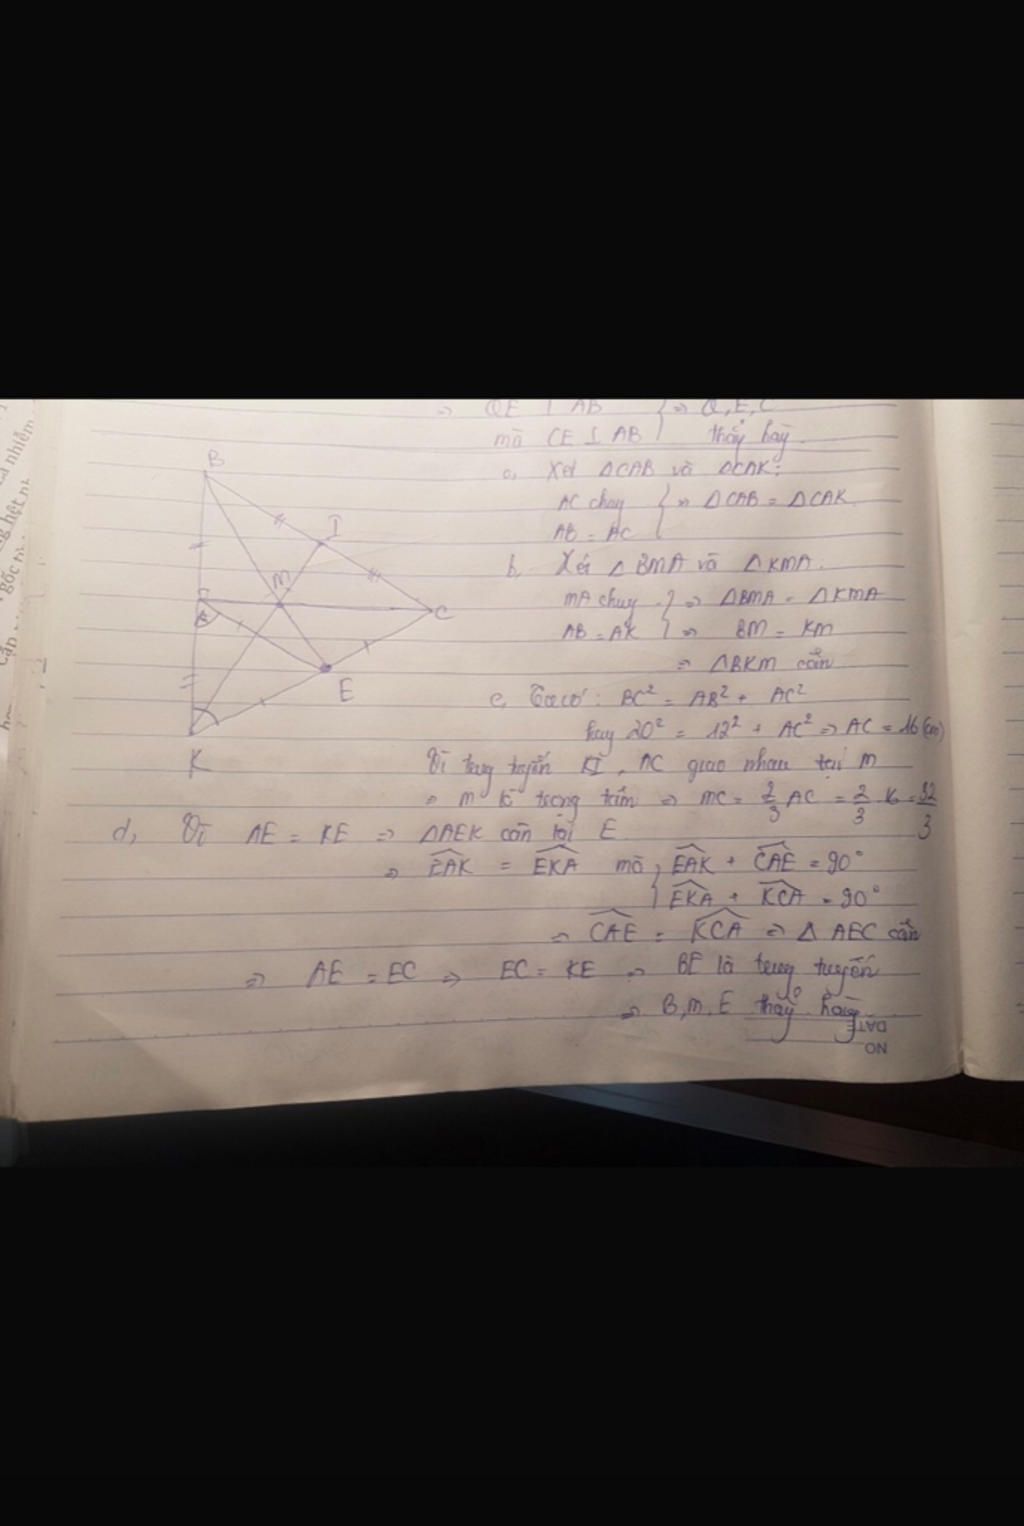 ⇒ QE ⊥ AB } ⇒ Q, E, C
mà CE ⊥ AB } thẳg hàg.
a, Xét ΔCAB và ΔCAK:
AC chug } ⇒ ΔCAB = ΔCAK
AB = AC
b, Xét ΔBMA và ΔKMA.
MA chug } ⇒ ΔBMA = ΔKMA
AB = AK } ⇒ BM = KM
⇒ ΔBKM cân
c, Ta có: BC² = AB² + AC²
hay 20² = 12² + AC² ⇒ AC = 16 (cm)
Vì trug tuyến KI, AC giao nhau tại M
⇒ M là trọng tâm ⇒ MC = 2/3 AC = 2/3 16 = 32/3
d, Vì AE = KE ⇒ ΔAEK cân tại E
⇒ EAK = EKA mà { EAK + CAE = 90°
{ EKA + KCA = 90°
⇒ CAE = KCA ⇒ Δ AEC cân
⇒ AE = EC ⇒ EC = KE ⇒ BE là trug tuyến
⇒ B, M, E thẳg hàng
DATE
NO
B
I
M
A
C
E
K